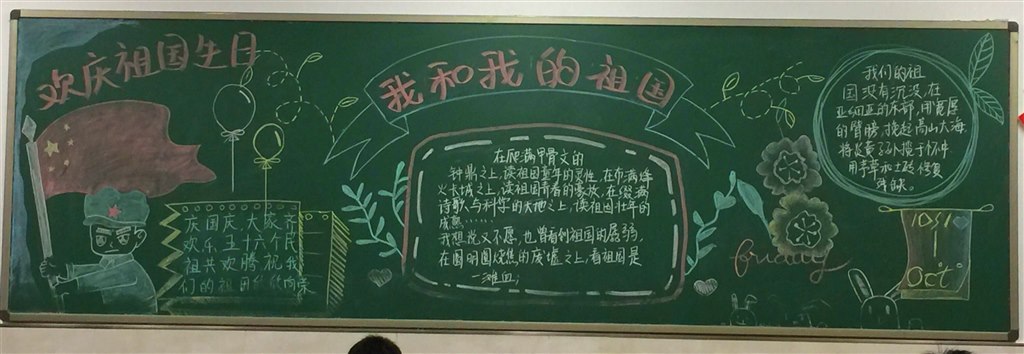 欢庆祖国生日
我和我的祖国
庆国庆,大家齐
欢乐,五十六个民
祖共欢腾,祝我
们的祖国
在爬满甲骨文的
钟鼎之上,读祖国童年的灵性,在布满烽
火长城之上,读祖国青春的豪放,在缀满
诗歌与科学的大地之上,读祖国壮年的
成熟……
我想说又不愿,也曾看到祖国的孱弱,
在圆明园烧焦的废墟之上,看祖国是
一滩血;
我们的祖
国没有沉没,在
亚细亚的东部,用宽厚
的臂膀,挽起高山大海
将
用勤
friday
10月
1
Oct